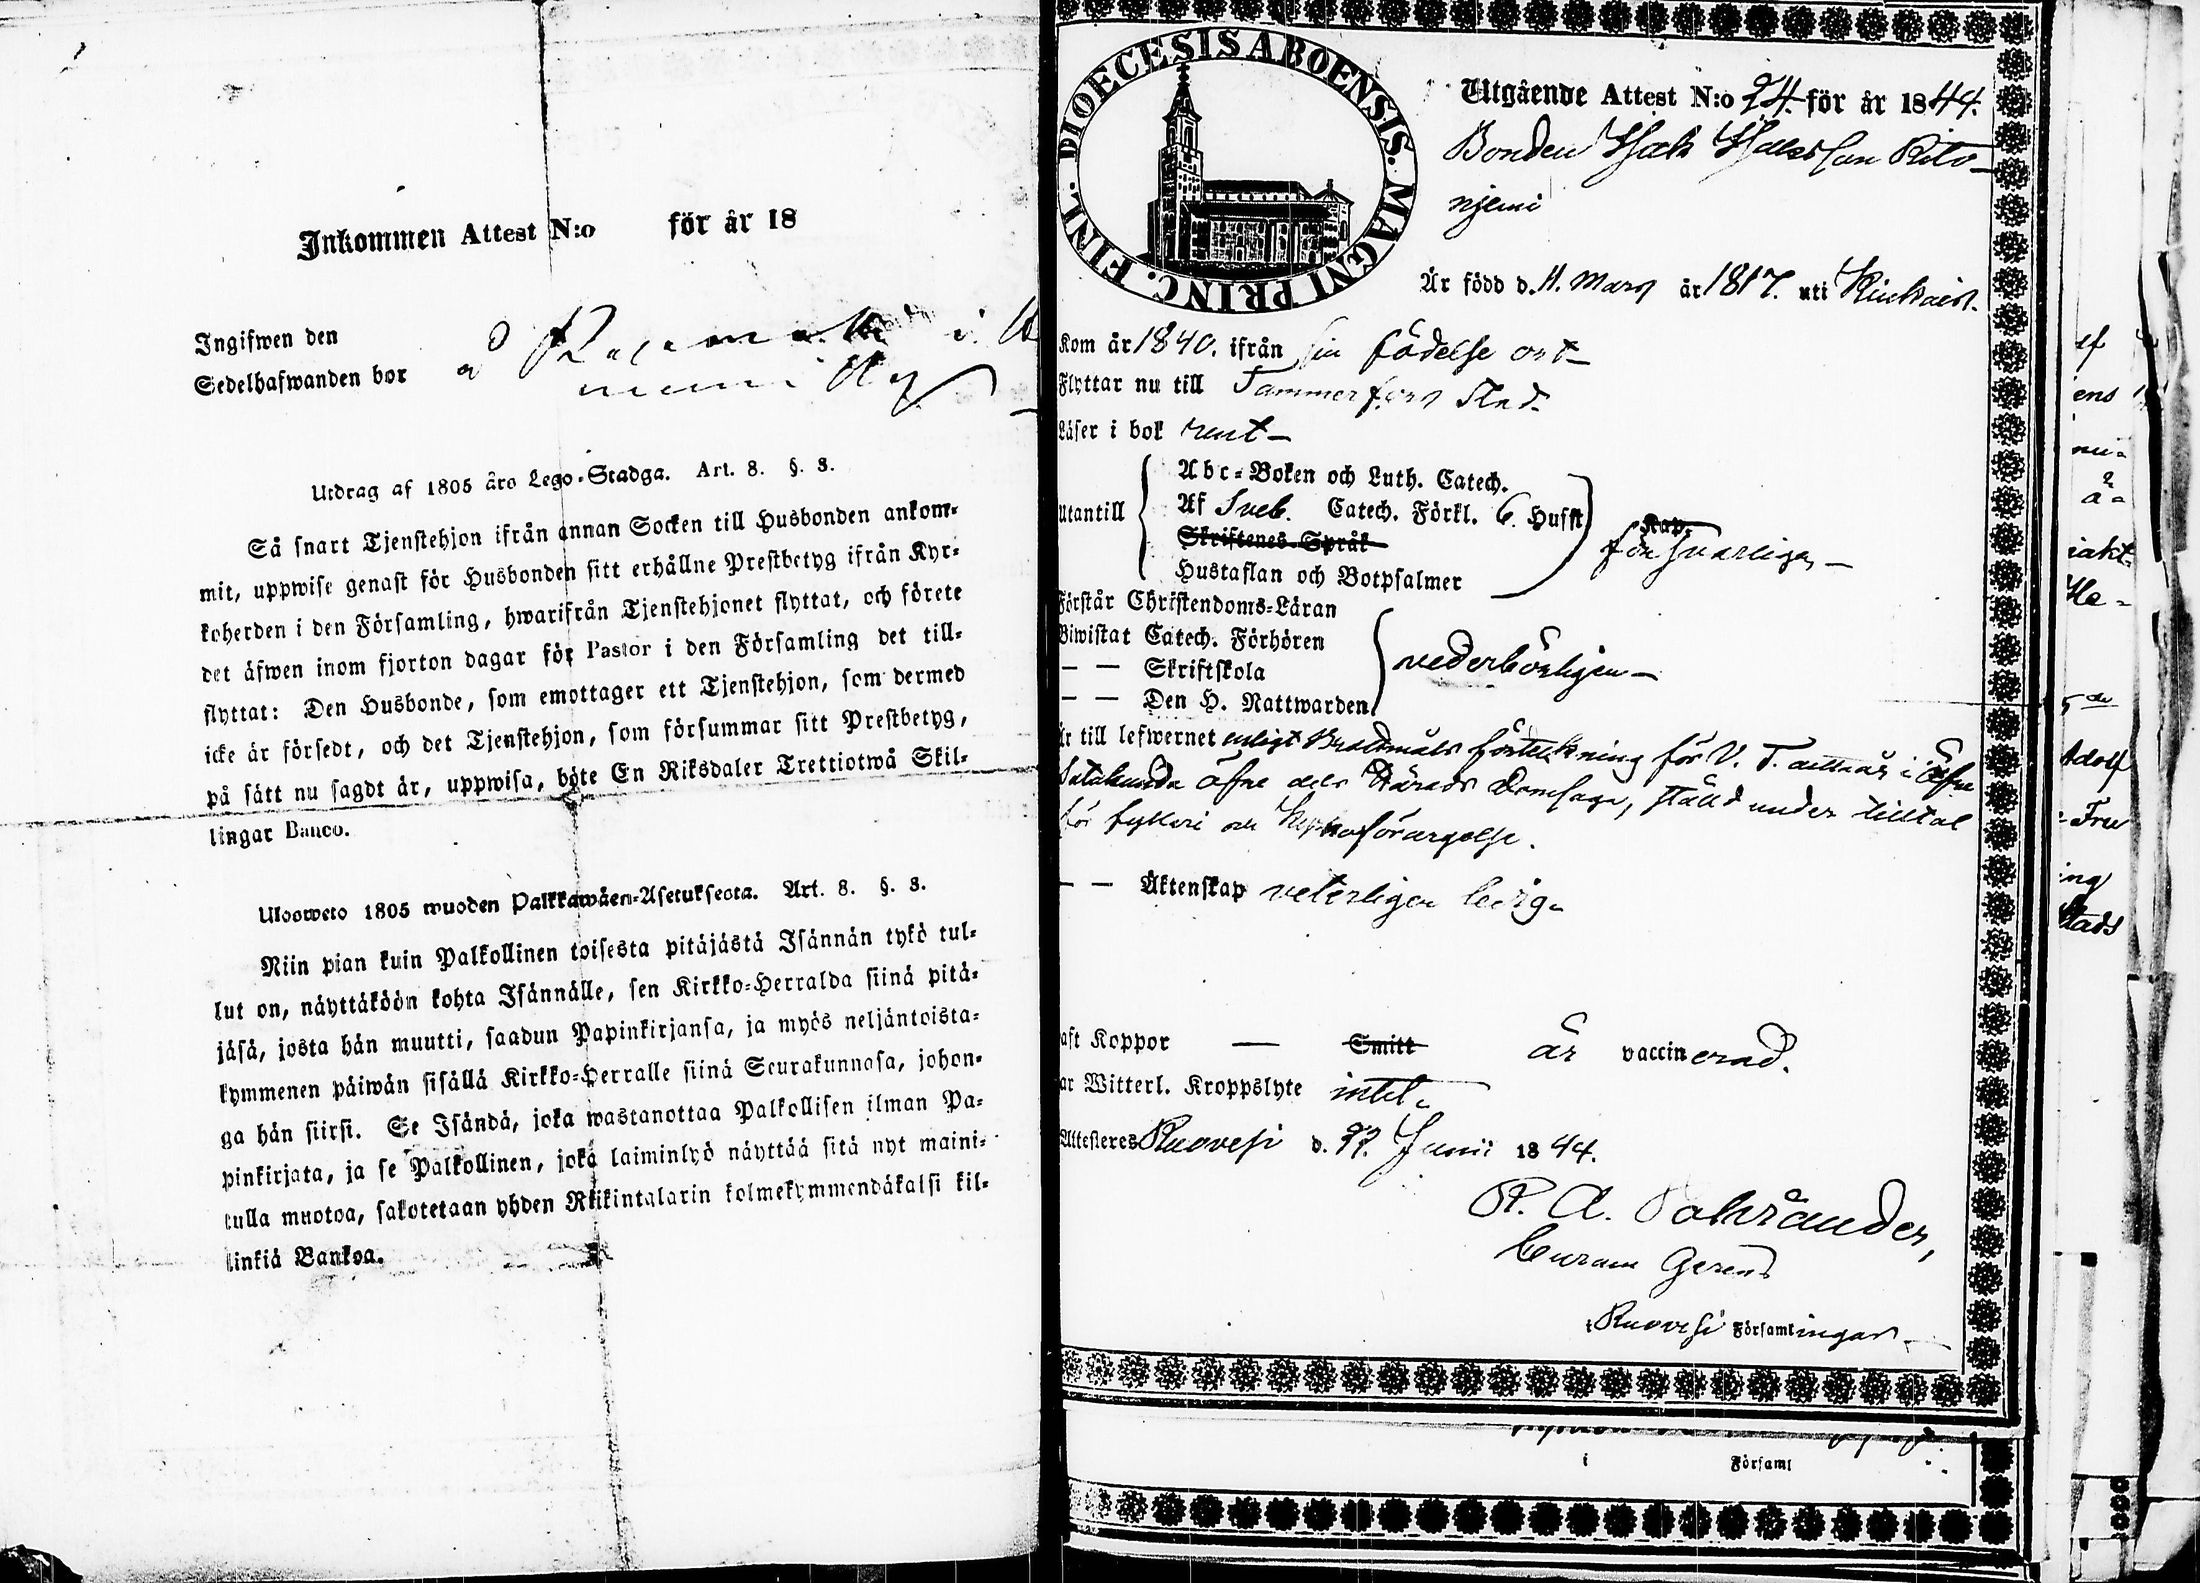 Inkommen Attest N:o för år 18
Ingifwen den
Sedelhafwanden bor
Utdrag af 1805 års Lego-Stadga. Art. 8. §. 8.
Så snart Tjenstehjon ifrån annan Socken till Husbonden ankom-
mit, uppwise genast för Husbonden sitt erhållne Prestbetyg ifrån Kyr-
koherden i den Församling, hwarifrån Tjenstehjonet flyttat, och förete
det äfwen inom fjorton dagar för Pastor i den Församling det till-
flyttat: Den Husbonde, som emottager ett Tjenstehjon, som dermed
icke är försedt, och det Tjenstehjon, som försummar sitt Prestbetyg,
på sätt nu sagdt är, uppwisa, böte En Riksdaler Trettiotwå Skil-
lingar Banco.
Ulosweto 1805 wuoden Palkkawäen-Asetuksesta. Art. 8. §. 8.
Niin pian kuin Palkollinen toisesta pitäjästä Isännän tykö tul-
lut on, näyttäköön kohta Isännälle, sen Kirkko-Herralda siinä pitä-
jäsä, josta hän muutti, saadun Papinkirjansa, ja myös neljäntoista-
kymmenen päiwän sisällä Kirkko-Herralle siinä Seurakunnasa, johon-
ga hän siirsi. Se Isändä, joka wastanottaa Palkollisen ilman Pa-
pinkirjata, ja se Palkollinen, joka laiminlyö näyttää sitä nyt maini-
tulla muotoa, sakotetaan yhden Riikintalarin kolmekymmendäkaksi kil-
linkiä Bankoa.
DIOECESIS ABOENSIS. MAGNI PRINC. FINL.
Utgående Attest N:o 24. för år 1844.
Bonden Isak Isaksson Rito-
njemi
Är född d. 11. Mars år 1817. uti Kuhais.
Kom år 1840. ifrån sin födelse ort
Flyttar nu till Tammerfors Stad.
Läser i bok rent
Abc-Boken och Luth. Catech.
Utantill Af Sveb. Catech. Förkl. 6. Hufst
Kap.
Skriftenes Språk
försvarligen
Hustaflan och Botpsalmer
Förstår Christendoms-Läran
Biwistat Catech. Förhören
— — Skriftskola vederbörligen
— — Den H. Nattwarden
Är till lefwernet enligt Brottmåls förteckning för V. T. i Öfre
Satakunda öfre dels Härads Domsaga, ställd under tilltal
för fylleri och förargelse.
— — Äktenskap veterligen ledig
aft Koppor — Smitt är vaccinerad.
ar Witterl. Kroppslyte intet
Attesteres Ruovesi d. 22. Junii 1844.
Curam Gerens
i Ruovesi Församlingar
i Församl
Adolf
Fru
ing